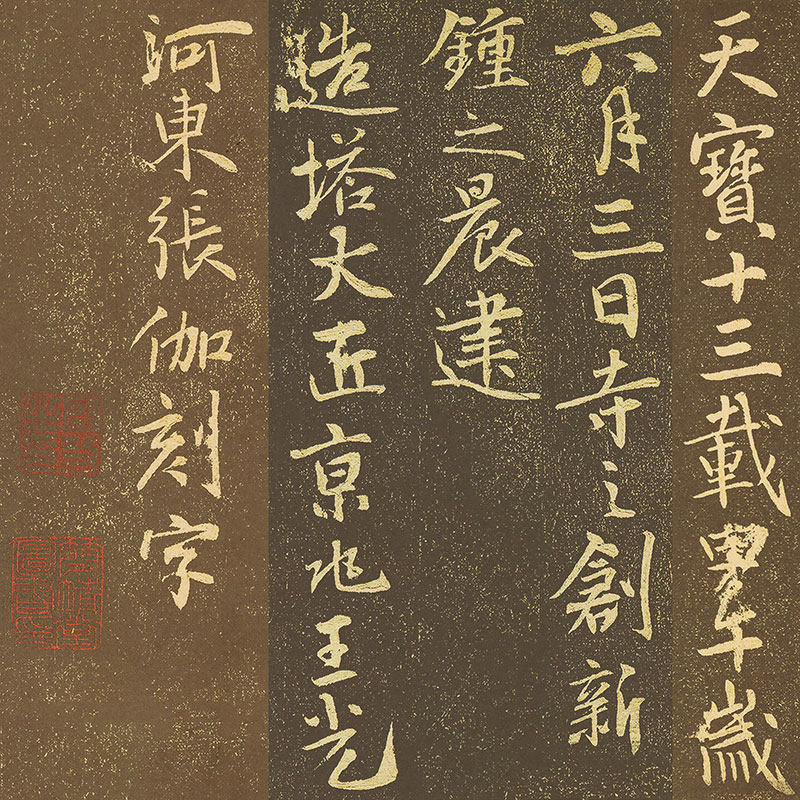 天寶十三載甲午歲
六月三日寺之創新
鍾之晨建
造塔大匠京兆王光
河東張伽刻字